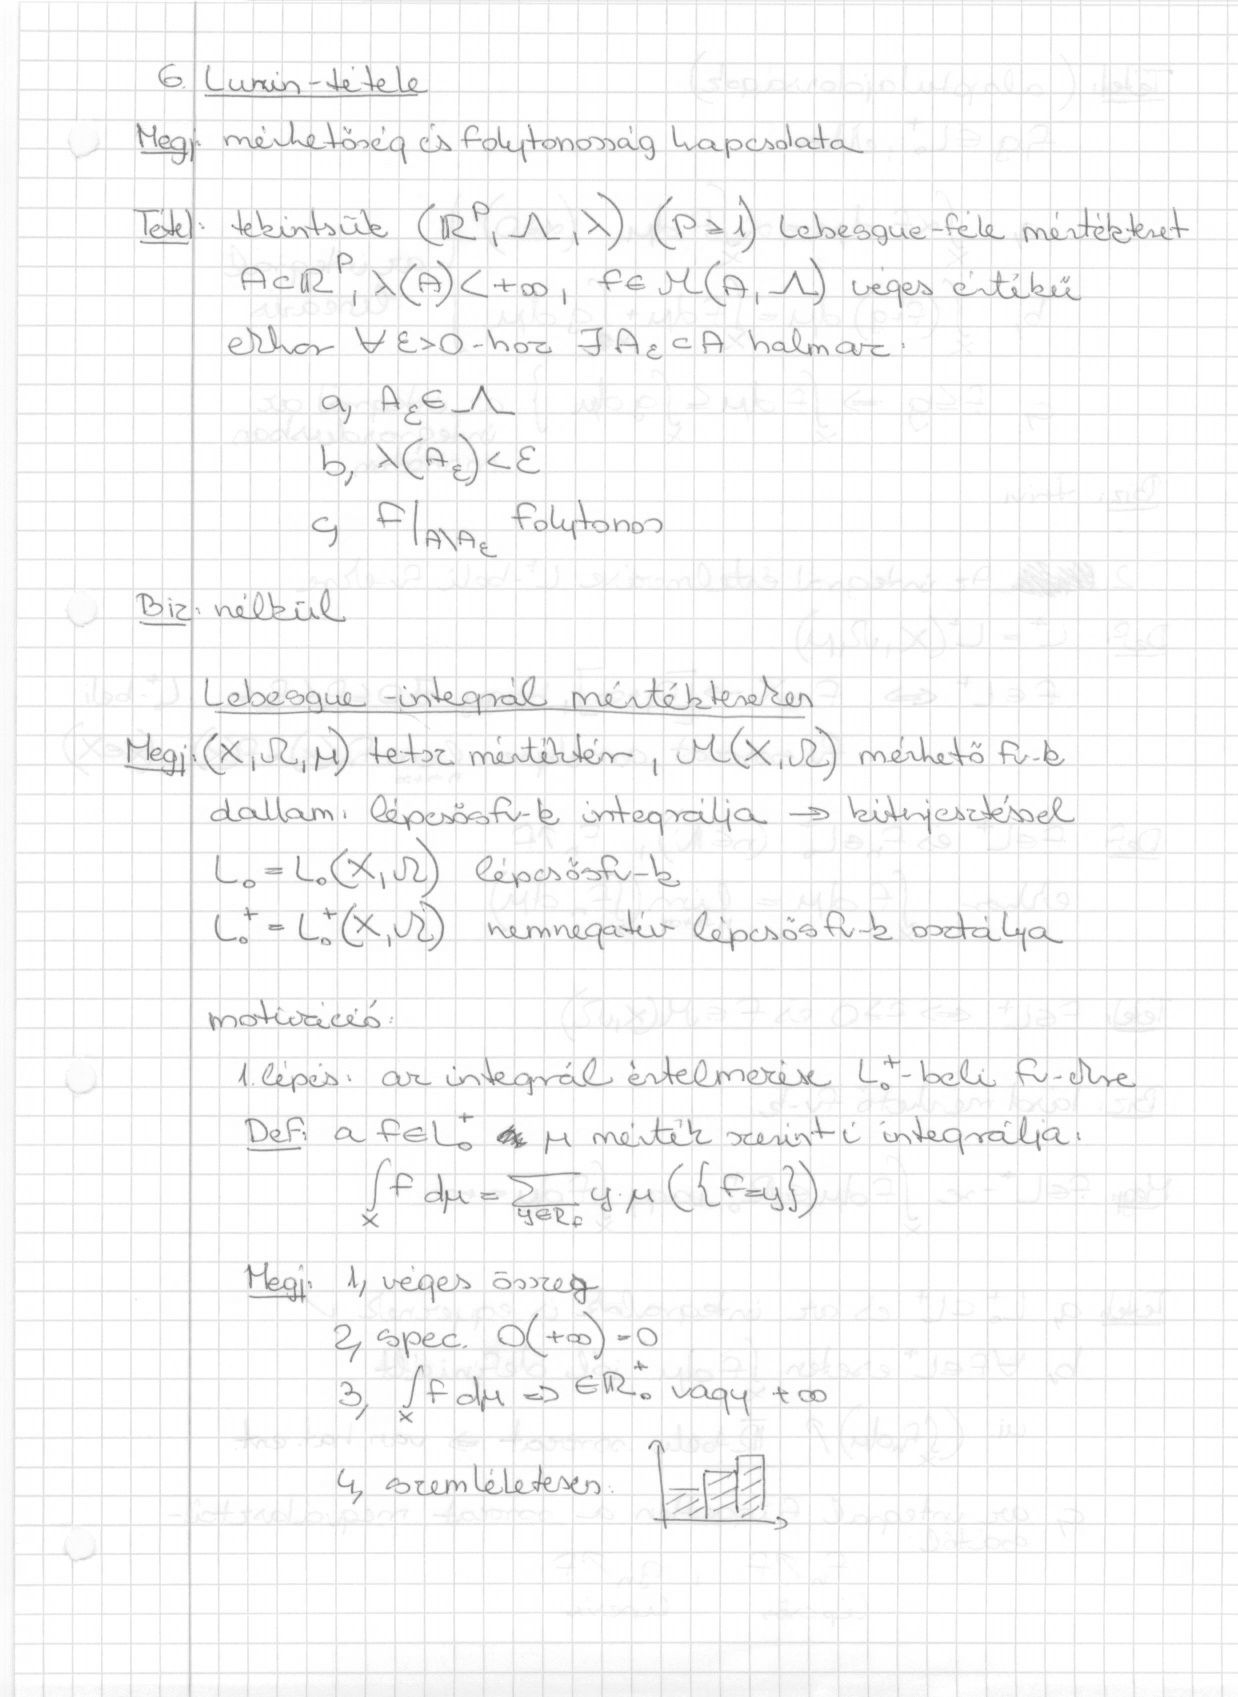 6. Luzin-tétele
Megj: mérhetőség és folytonosság kapcsolata
Tétel: tekintsük (ℝᵖ, Λ, λ) (p≥1) Lebesgue-féle mértékteret
A⊂ℝᵖ, λ(A)<+∞, f∈M(A, Λ) véges értékű
ekkor ∀ε>0-hoz ∃A_ε⊂A halmaz:
a, A_ε∈Λ
b, λ(A_ε)<ε
c, f|_{A\A_ε} folytonos
Biz: nélkül
Lebesgue-integrál mértéktereken
Megj: (X,Ω,μ) tetsz mértéktér, M(X,Ω) mérhető fv-k
dallam: lépcsősfv-k integrálja → kiterjesztéssel
L₀ = L₀(X,Ω) lépcsősfv-k
L₀⁺ = L₀⁺(X,Ω) nemnegatív lépcsősfv-k osztálya
motiváció:
1. lépés: az integrál értelmezése L₀⁺-beli fv-ekre
Def: a f∈L₀⁺ μ mérték szerinti integrálja:
∫_X f dμ = Σ_{y∈R_f} y·μ({f=y})
Megj: 1, véges összeg
2, spec. 0(+∞)=0
3, ∫_X f dμ ⇒ ∈ℝ₀⁺ vagy +∞
4, szemléletesen: